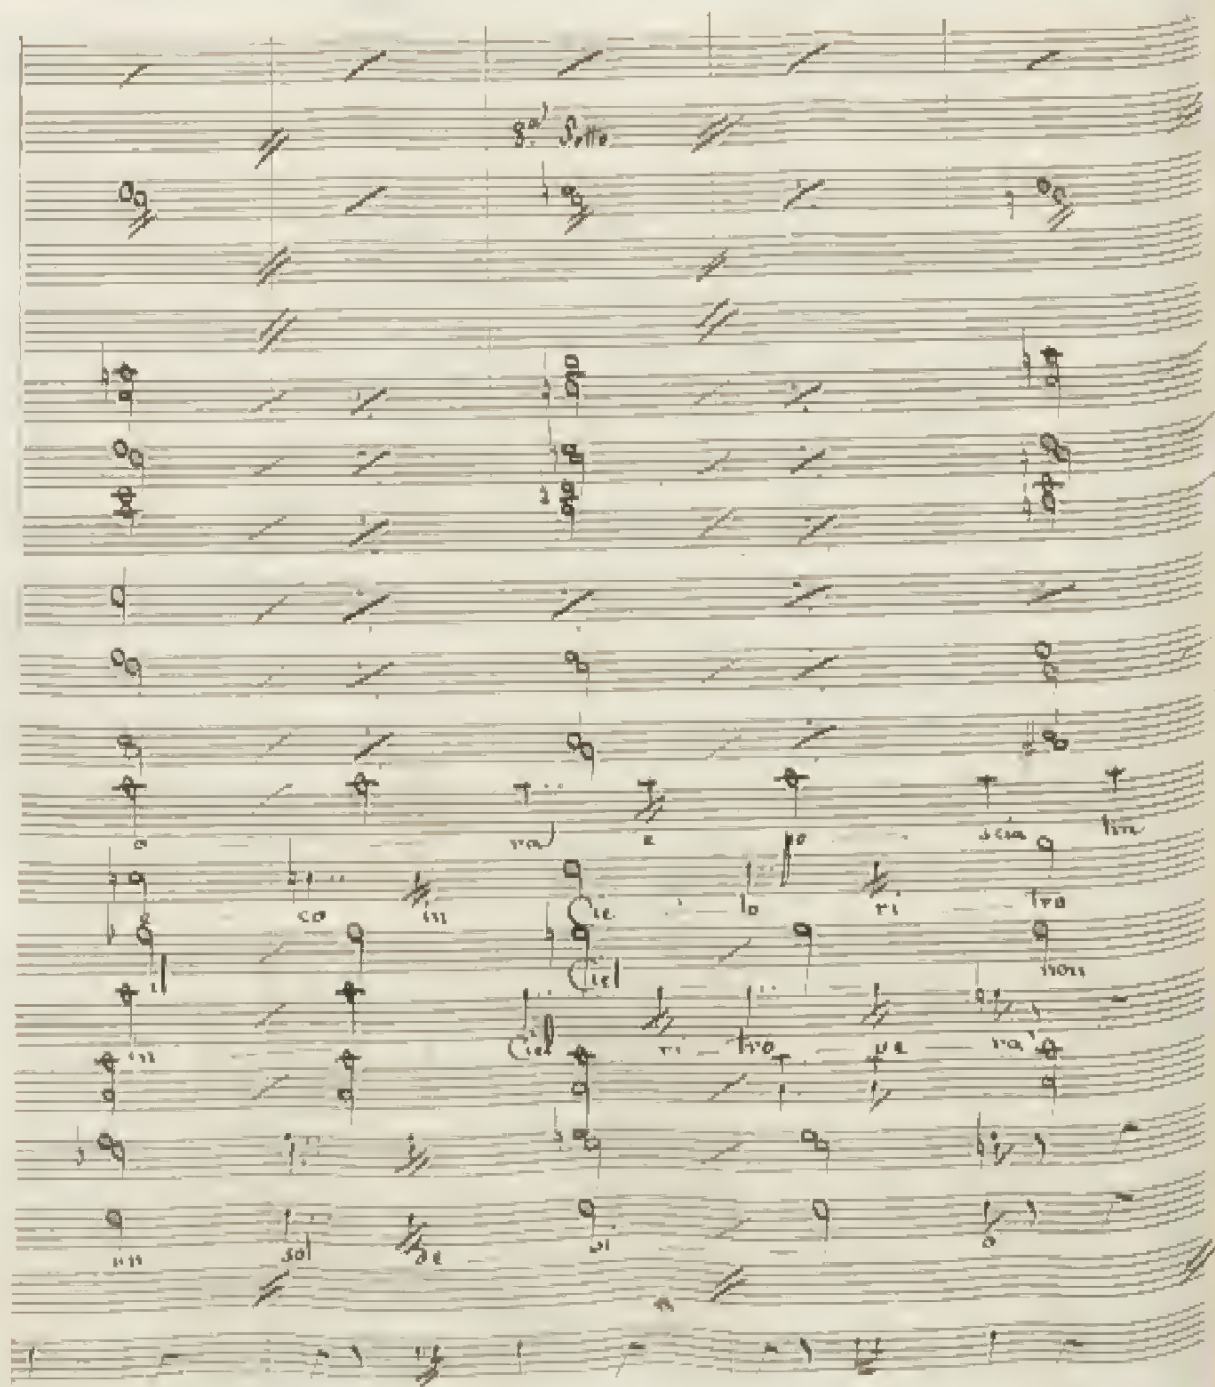 8.ª Sotto
o va e po scia tin
e co in Cie lo ri tro
il Ciel non
in Ciel ri tro ve rà
un sol De si o